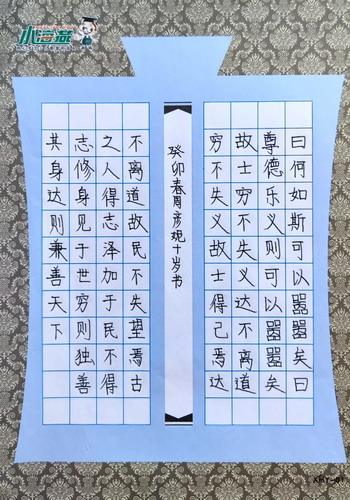 曰何如斯可以嚣嚣矣曰
尊德乐义则可以嚣嚣矣
故士穷不失义达不离道
穷不失义故士得己焉达
癸卯春周彦十岁书
不离道故民不失望焉古
之人得志泽加于民不得
志修身见于世穷则独善
其身达则兼善天下